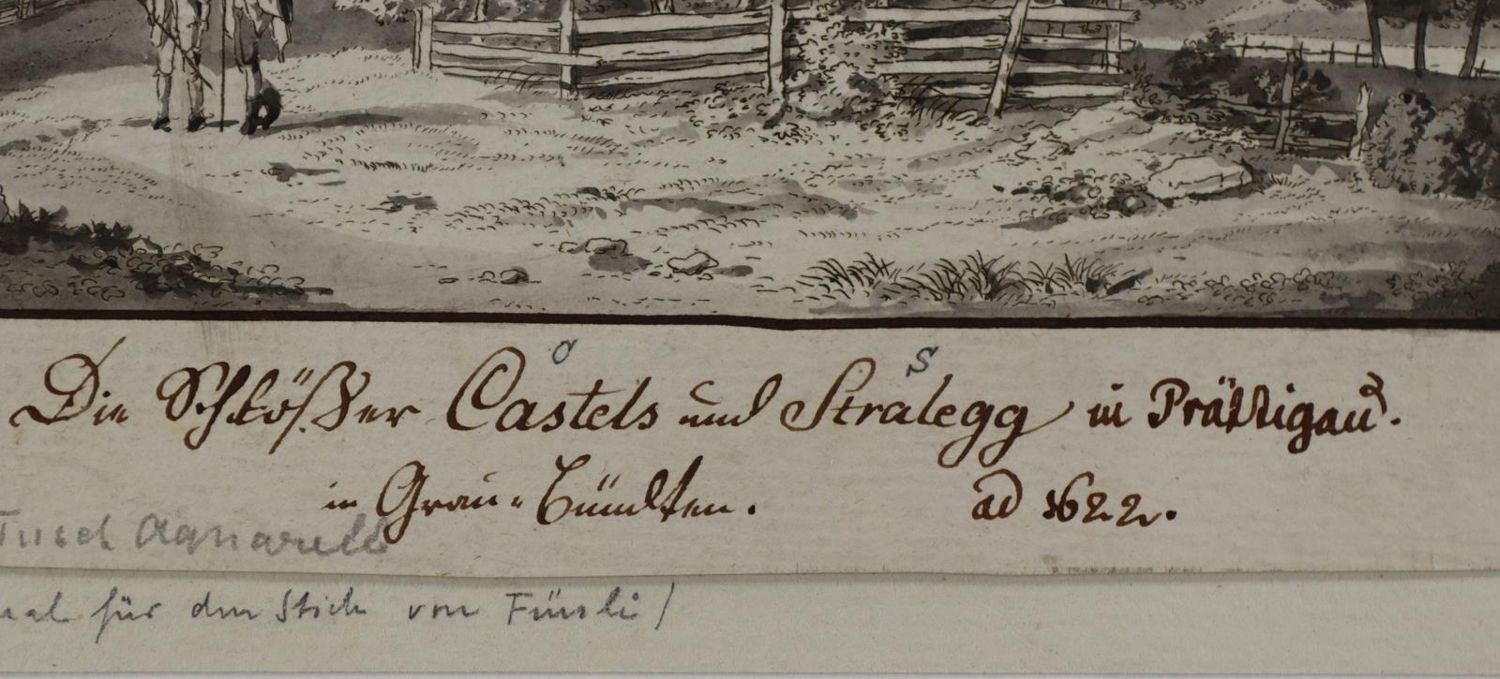 C S
Die Schlößer Castels und Stralegg in Prättigau.
in Grau-Bündten. ad 1622.
Tusch Aquarell
für den Stich von Füssli /